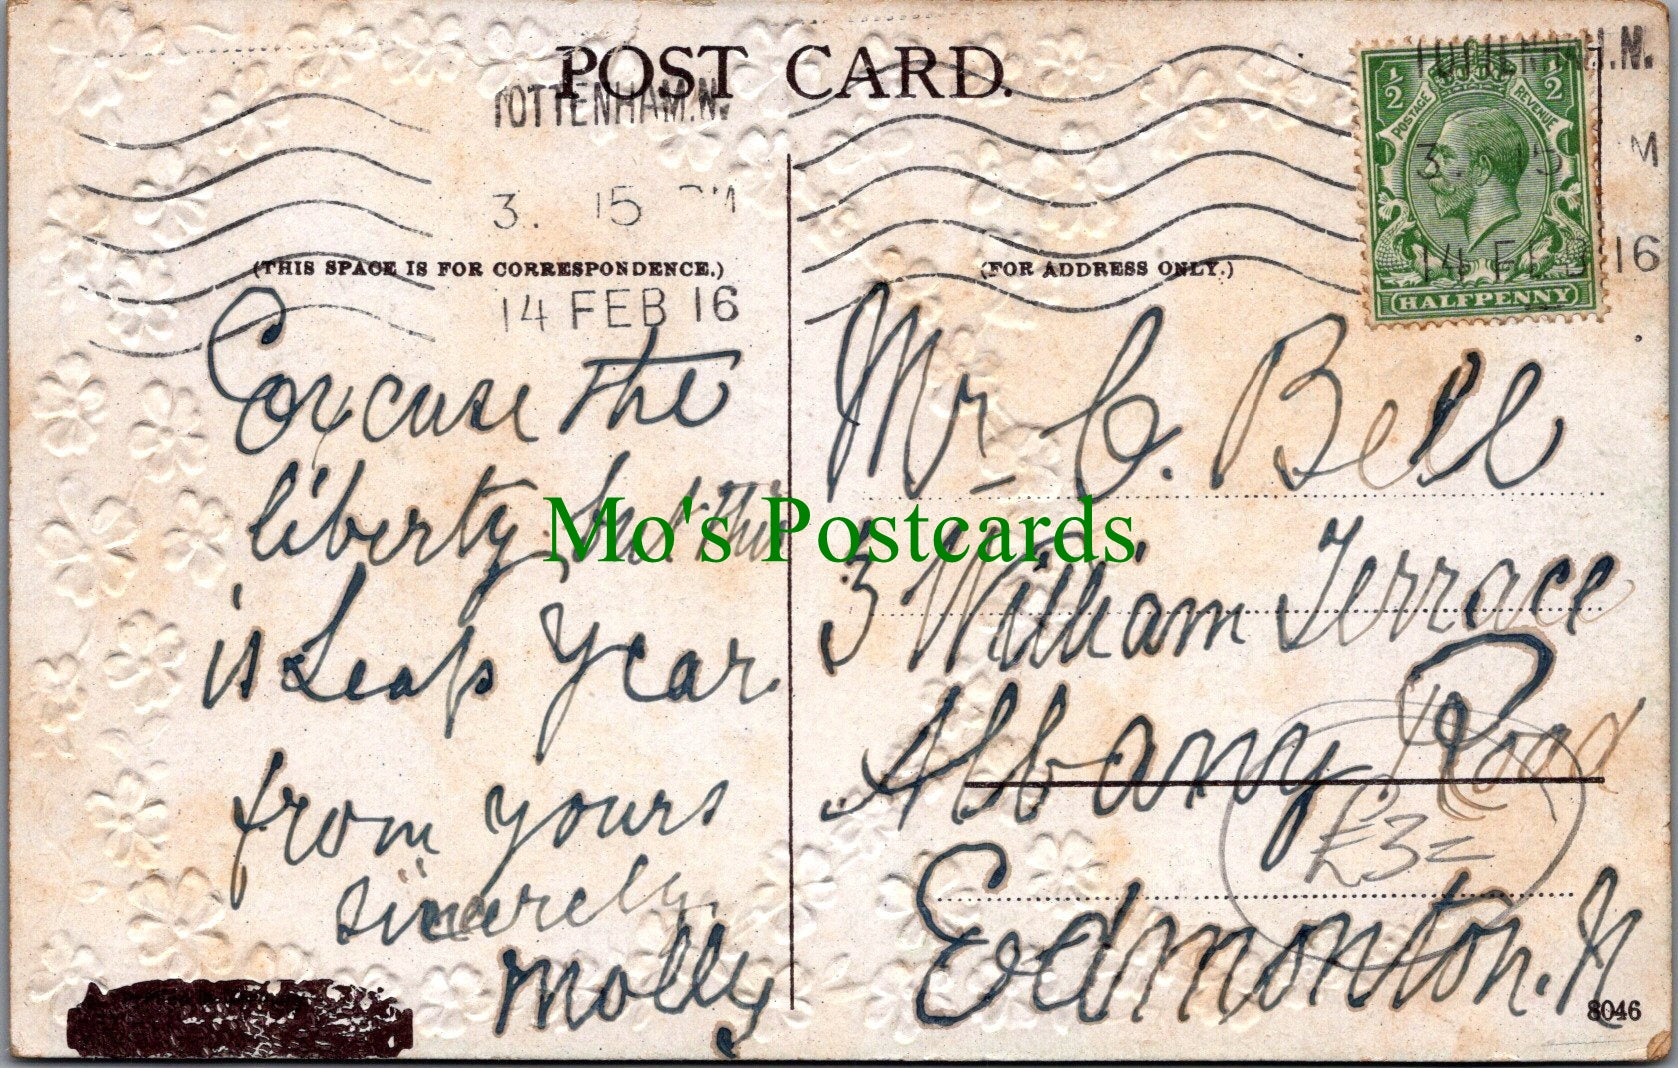 POST CARD.
TOTTENHAM.N.
TOTTENHAM.N.
3. 15 PM
3. 15 M
14 FEB 16
14 FEB 16
1/2 1/2
POSTAGE REVENUE
HALFPENNY
(THIS SPACE IS FOR CORRESPONDENCE.)
Excuse the
liberty, but this
is Leap Year.
from yours
sincerely
Molly
(FOR ADDRESS ONLY.)
Mr C. Bell
3 William Terrace
Albany Road
Edmonton. N
£3=
8046
Mo's Postcards